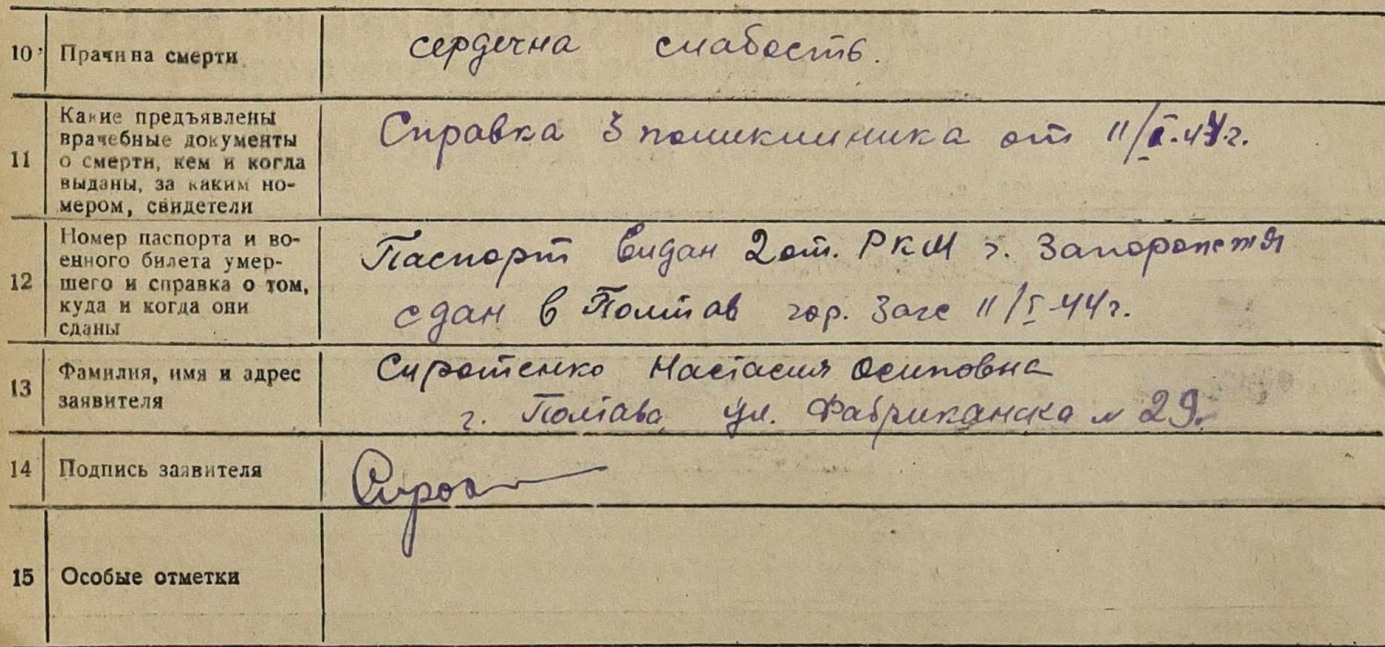 10 Прачина смерти сердечна слабость.
11 Какие предъявлены
врачебные документы
о смерти, кем и когда
выданы, за каким но-
мером, свидетели
Справка 3 поликлиника от 11/I-44г.
12 Номер паспорта и во-
енного билета умер-
шего и справка о том,
куда и когда они
сданы
Паспорт видан 2 от. РКМ г. Запорожстя
сдан в Полтав гор. Загс 11/I-44г.
13 Фамилия, имя и адрес
заявителя
Сиротенко Настасия Осиповна
г. Полтава ул. Фабриканска № 29.
14 Подпись заявителя
15 Особые отметки